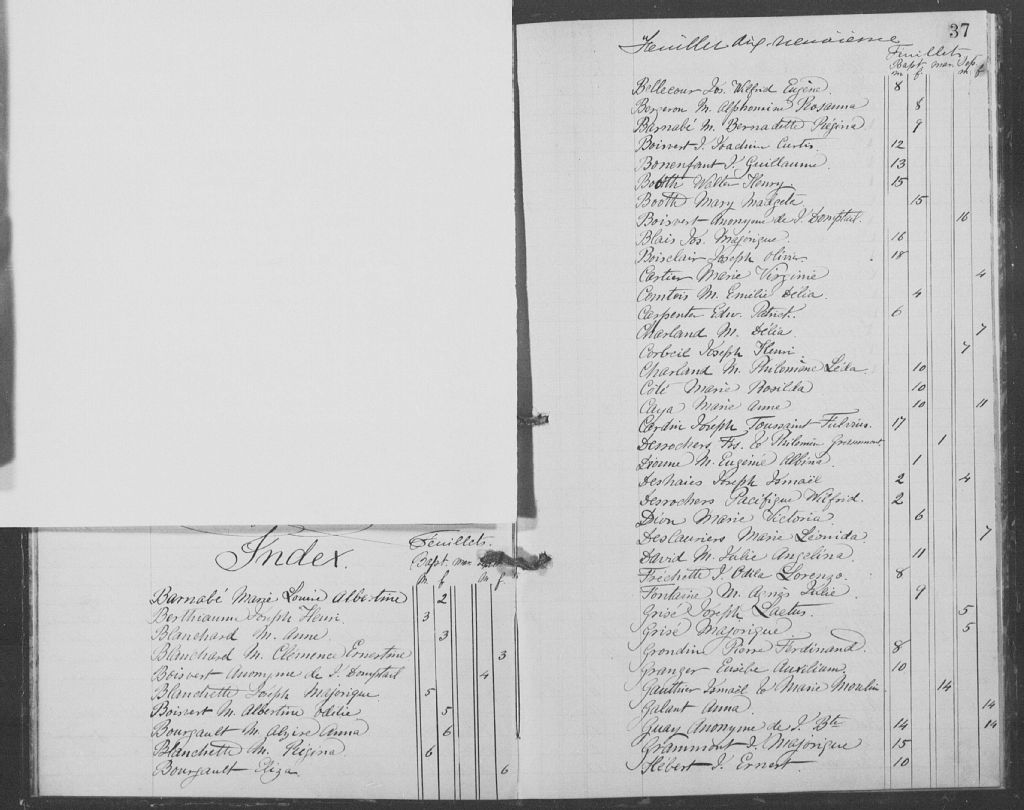 Index.
Feuillets.
Bapt. mar. Sep.
m. f. m. f.
Barnabé Marie Louise Albertine 2
Berthiaume Joseph Henri. 3
Blanchard M. Anne. 3
Blanchard M. Clemence Ernestine 3
Boisvert Anonyme de J. Domptail 4
Blanchette Joseph Majorique 5
Boisvert M. Albertine Odélie 5
Bourgault M. Alzire Anna 6
Blanchette M. Régina 6
Bourgault Eliza 6
37
Feuillet dix-neuvième
Feuillets
Bapt. mar. Sep.
m f m f
Bellecour Jos. Wilfrid Eugène. 8
Bergeron M. Alphonsine Rosanna 8
Barnabé M. Bernadette Régina 9
Boisvert J. Joachim Curtis. 12
Bonenfant J. Guillaume 13
Booth Walter Henry 15
Booth Mary 15
Boisvert Anonyme de J. Domptail. 16
Blais Jos. Majorique. 16
Boisclair Joseph Olivier 18
Cartier Marie Virginie 4
Comtois M. Emélie Délia. 4
Carpenter Edw. Patrick. 6
Charland M. Délia. 7
Corbeil Joseph Henri 7
Charland M. Philomène Léda. 10
Coté Marie Rosilda 10
Caya Marie Anne 10 11
Cardin Joseph Toussaint Fulvius. 17
Desrochers Frs. & Philomène 1
Dionne M. Eugénie Albina. 1
Deshaies Joseph Ismaël 2 4
Desrochers Pacifique Wilfrid. 2
Dion Marie Victoria. 6
Deslauriers Marie Léonida 7
David M. Julie Angelina 11
Fréchette J. Odila Lorenzo. 8
Fontaine M. Agnès Julie 9
Grisé Joseph Laetus. 5
Grisé Majorique 5
Grondin Pierre Ferdinand. 8
Granger Eusèbe Auxilium. 10
Gauthier Ismaël & Marie Moulin. 14
Galant Anna. 14
Guay Anonyme de J. Bte 14 14
Grammont J. Majorique 15
Hébert J. Ernest. 10